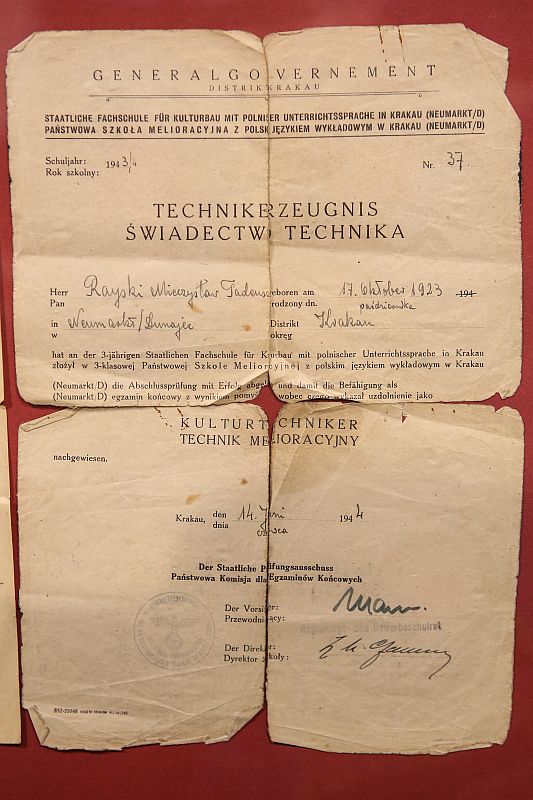 GENERALGOUVERNEMENT
DISTRIKT KRAKAU
STAATLICHE FACHSCHULE FÜR KULTURBAU MIT POLNISCHER UNTERRICHTSSPRACHE IN KRAKAU (NEUMARKT/D)
PAŃSTWOWA SZKOŁA MELIORACYJNA Z POLSK. JĘZYKIEM WYKŁADOWYM W KRAKAU (NEUMARKT/D)
Schuljahr: 1943/4 Nr. 37.
Rok szkolny:
TECHNIKERZEUGNIS
ŚWIADECTWO TECHNIKA
Herr Rayski Mieczysław Tadeusz geboren am 17. Oktober 1923 194
Pan urodzony dn. października
in Neumarkt/Dunajec Distrikt Krakau
w okręg
hat an der 3-jährigen Staatlichen Fachschule für Kulturbau mit polnischer Unterrichtssprache in Krakau
złożył w 3-klasowej Państwowej Szkole Melioracyjnej z polskim językiem wykładowym w Krakau
(Neumarkt/D) die Abschlußprüfung mit Erfolg abgelegt und damit die Befähigung als
(Neumarkt/D) egzamin końcowy z wynikiem pomyśl. wobec czego wykazał uzdolnienie jako
KULTURTECHNIKER
TECHNIK MELIORACYJNY
nachgewiesen.
Krakau, den 14. Juni 1944
dnia czerwca
Der Staatliche Prüfungsausschuss
Państwowa Komisja dla Egzaminów Końcowych
Der Vorsitzer:
Przewodniczący:
Regierungs- und Gewerbeschulrat
Der Direktor:
Dyrektor szkoły: